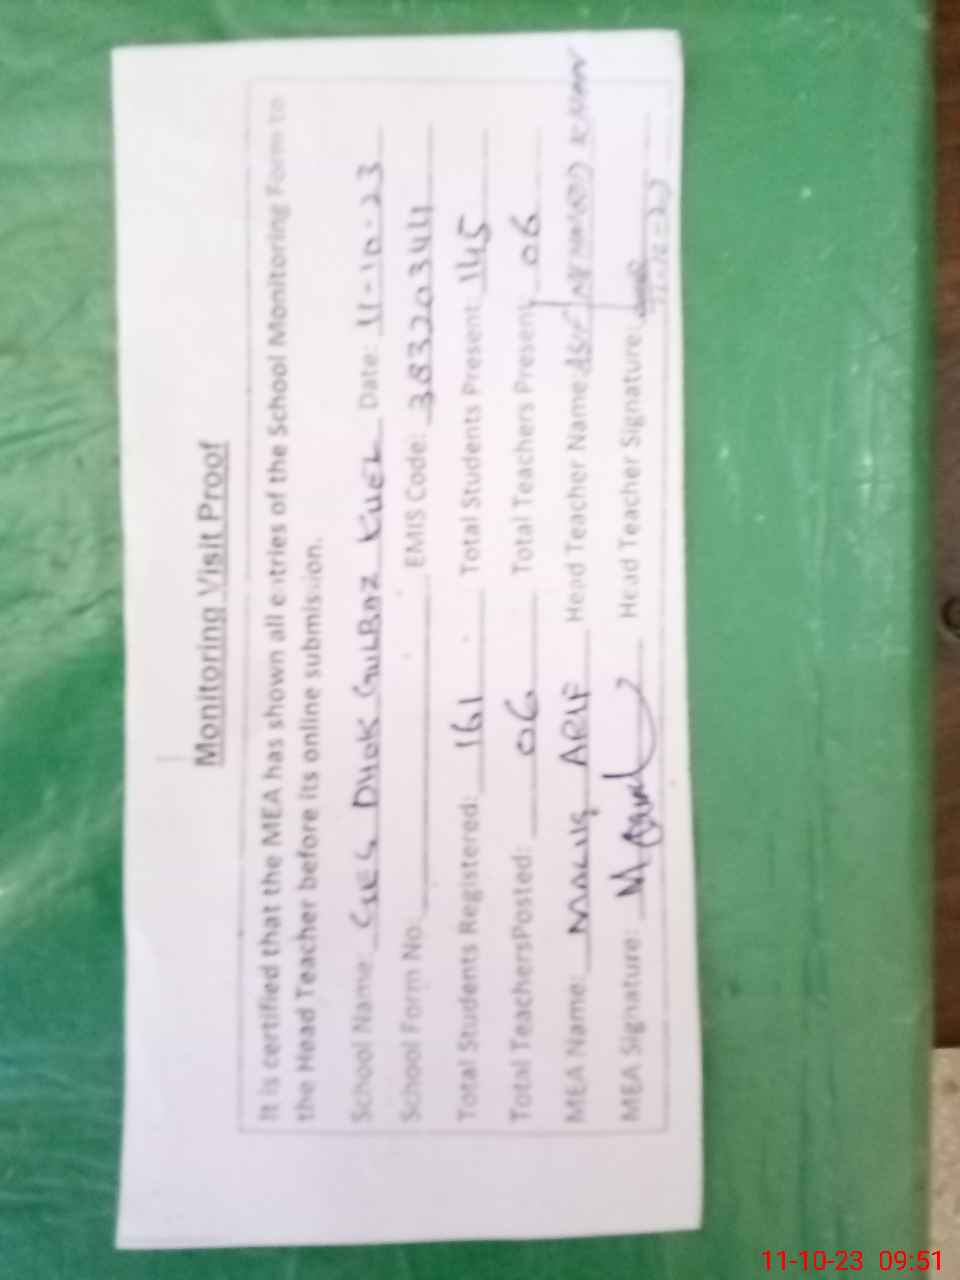 Monitoring Visit Proof
It is certified that the MEA has shown all entries of the School Monitoring Form to
the Head Teacher before its online submission.
School Name: GES DHOK GULBAZ KUEL Date: 11-10-23
School Form No. EMIS Code: 38320344
Total Students Registered: 161 Total Students Present: 145
Total TeachersPosted: 06 Total Teachers Present: 06
MEA Name: MALIK ARIF Head Teacher Name:
MEA Signature: Head Teacher Signature:
11-10-23 09:51